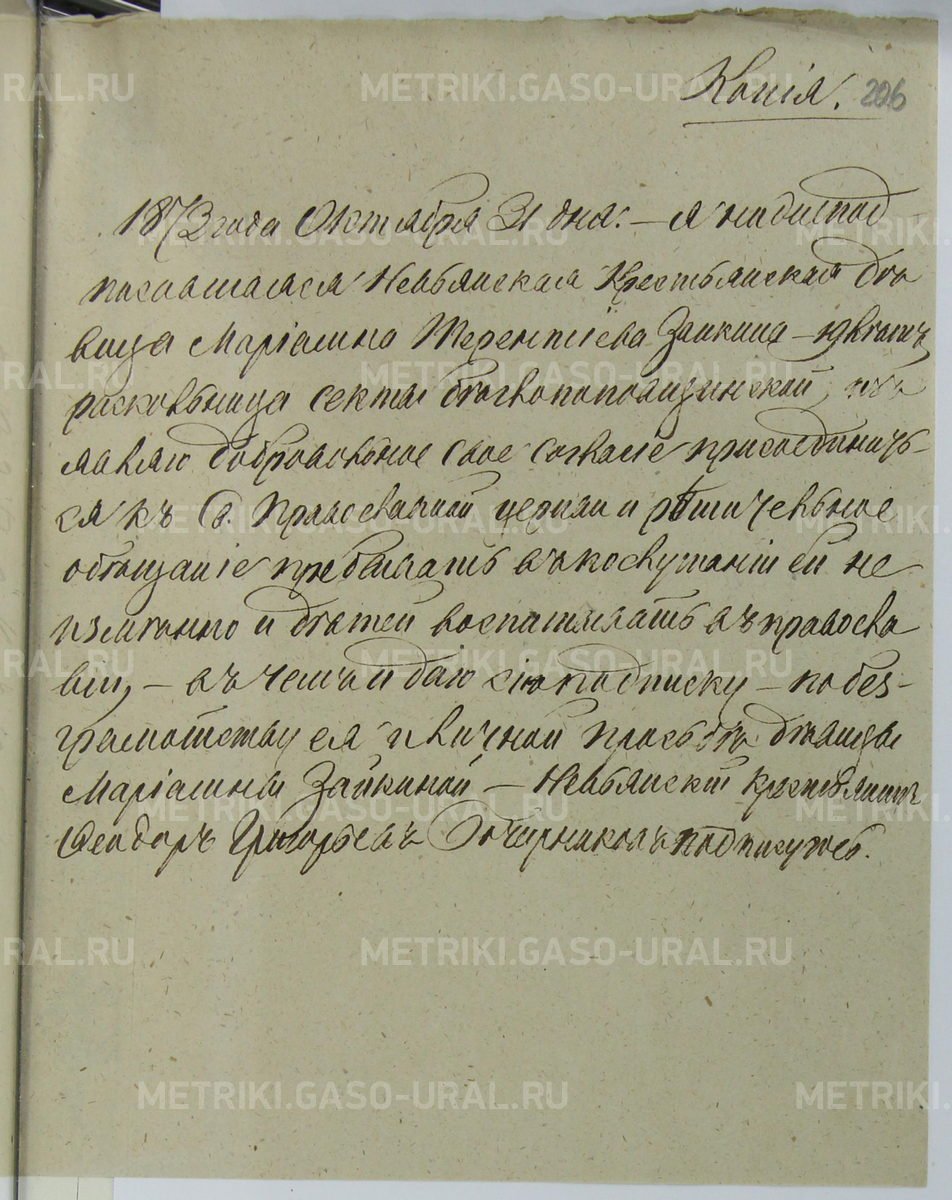 Копія. 206
1873 года Октября 31 дня. — я нижепод
писавшаяся Невьянская Крестьянская дѣ
вица Маріамна Терентіева Заикина —
расковьница секты бѣглопоповщинской, изъ
являю добровольное свое согласіе присоединить-
ся къ Св. Православной церкви и рѣшительное
обѣщаніе пребывать въ послушаніи ей не
измѣнно и дѣтей воспитывать въ правосла
віи, — въ чемъ и даю сію подписку — по без-
грамотству ея и личной прозьбѣ дѣвицы
Маріамны Заикиной — Невьянскій крестьянинъ
Ѳеодоръ Григорьевъ подписуюсь.
METRIKI.GASO-URAL.RU